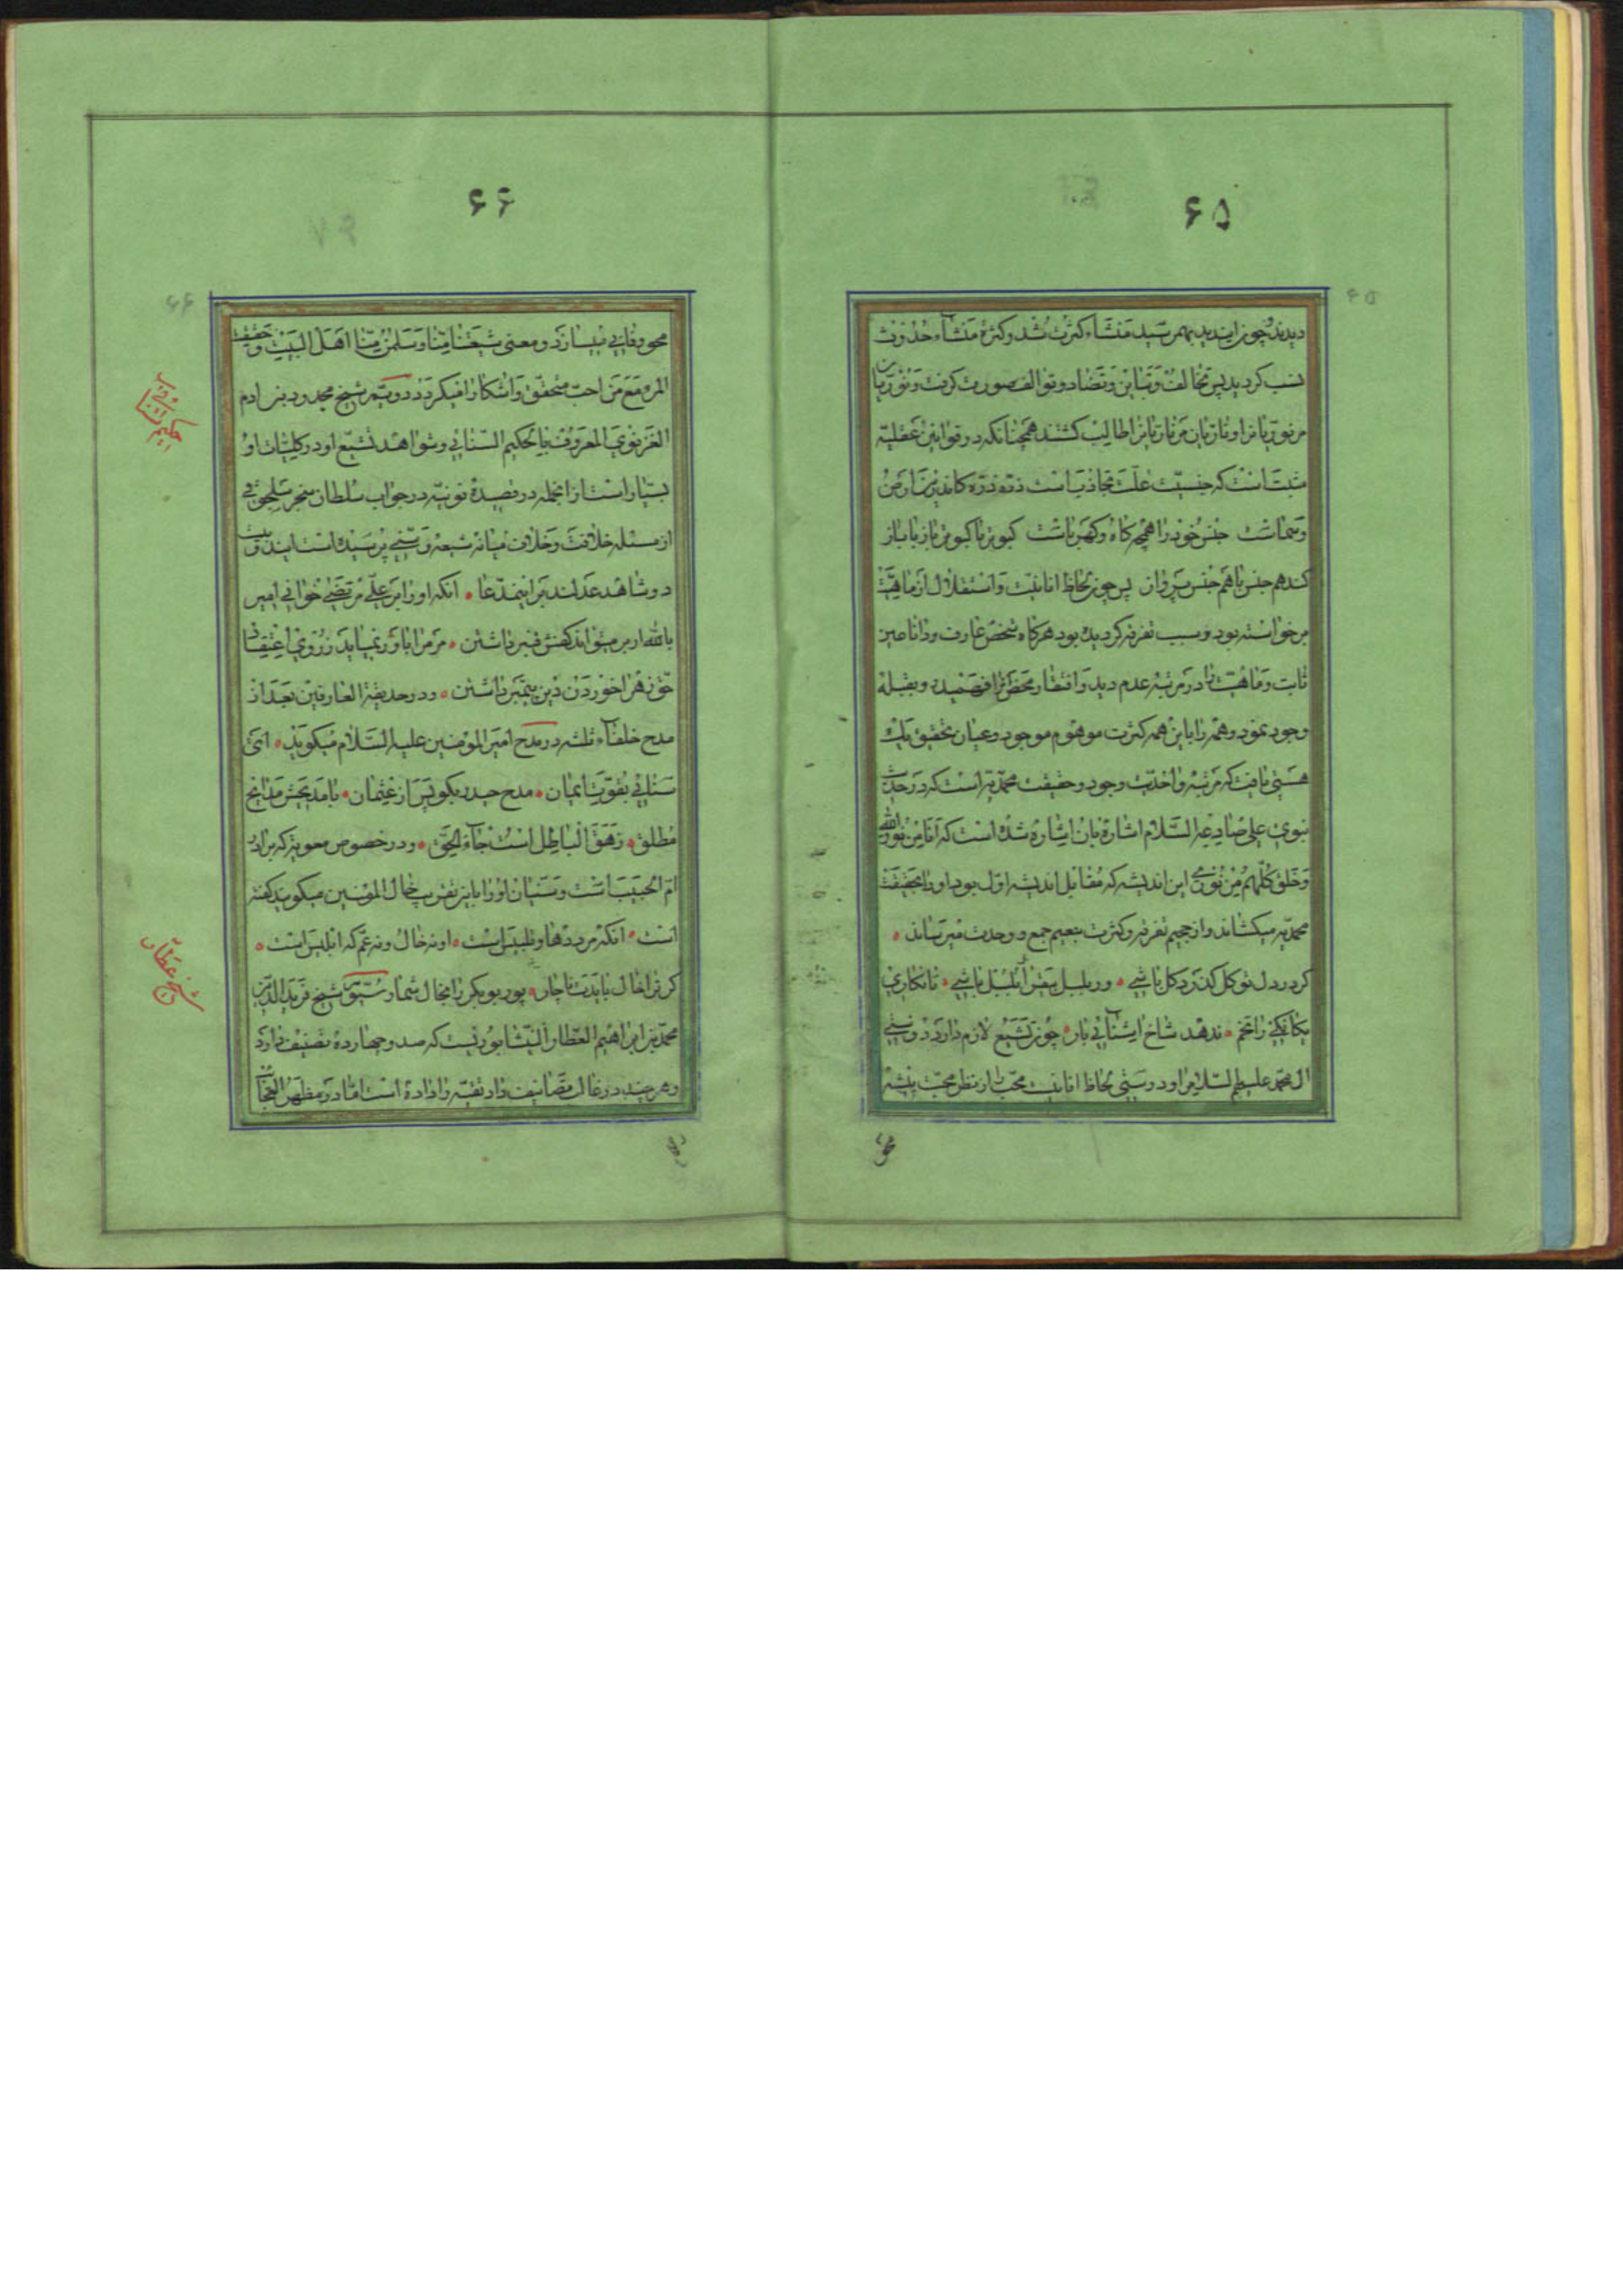 ۶۵
دیدند و چون این دید بهم رسید منشأ کثرت شد و کثرة منشأ حدوث
نسب کردید پس تخالف و تباین و تضاد و توالف صورت کرفت و نوریان
مر نوریانرا و ناریان مر ناریانرا طالب کشتند همچنانکه در قوانین عقلیه
مثبت است که جنسیت علت تجاذب است ذره ذره کاندرین ارض
و سماست جنس خود را همچو کاه و کهرباست کبوتر با کبوتر باز با باز
کند هم جنس با هم جنس پرواز پس چون لحاظ انانیت و استقلال از ماهیت
بر خواسته بود و سبب تفرقه کردیده بود هرکاه شخص عارف و دانا عین
ثابت و ماهیت را در مرتبه عدم دید و افتقار محض را فهمید و بقبله
وجود نمود و همه را با این همه کثرت موهوم موجود و عیان بتحقیق یک
هستی یافت که مرتبه واحدیت وجود و حقیقت محمدیه است که در حدیث
نبوی علی صادعه السلام اشاره بان اشاره شده است که انا من نور الله
و خلق کلهم من نوری این اندیشه که مقابل اندیشه اول بود او را بحقیقت
محمدیه میکشاند و از جحیم تفرقه و کثرت بنعیم جمع و وحدت میرساند
کر در دل تو کل کذرد کل باشی ور بلبل بیقرار بلبل باشی تا نکاری
نخم ندهد شاخ ایشنائی بار چون تشیع لازم دارد دوستی
ال محمد علیهم السلام را و دوستی لحاظ انانیت محب را از نظر محبت پیشه
محو
۶۶
محو و فانی میسازد و معنی شیعتنا منا و سلمن منا اهل البیت و حقیقت
المرء مع من احب متحقق و اشکارا میکردد دویم شیخ مجدود بن ادم
الغزنوی المعروف بالحکیم السنائی و شواهد تشیع او در کلیات او
بسیار است از انجمله در قصیدة نونیه در جواب سلطان سنجر سلجوقی
از مسئله خلافت و خلاف میانه شیعه و سنی پرسیده است ایندو بیت
دو شاهد عدلند بر اینمدعا انکه او را بر علی مرتضی خوانی امیر
بالله ار بر میتواند کفش قنبر داشتن مر مرا باور نمیاید ز روی اعتقاد
حق زهرا خوردن و دین پیمبر داشتن و در حدیقة العارفین بعد از
مدح خلفاء ثلثه در مدح امیر المومنین علیه السلام میکوید ای
سنائی بقوت ایمان مدح حیدر بکو پس از عثمان با مدیحش مدایح
مطلق زهق الباطل است جاء الحق و در خصوص معویه که برادر
ام الحبیب است و سنیان او را باین تقریب خال المومنین میکویند کفته
است انکه مردد ها و تلبیس است او نه خال و نه عم که ابلیس است
کر ترا خال بایدت ناچار پور بوبکر را بخال شمار سیوم شیخ فرید الدین
محمد بن ابراهیم العطار النیشابوریست که صد و چهارده تصنیف دارد
و هر چند در غالب تصانیف داد تقیه را داده است اما در مظهر العجائب
حکیم سنائی
شیخ عطار